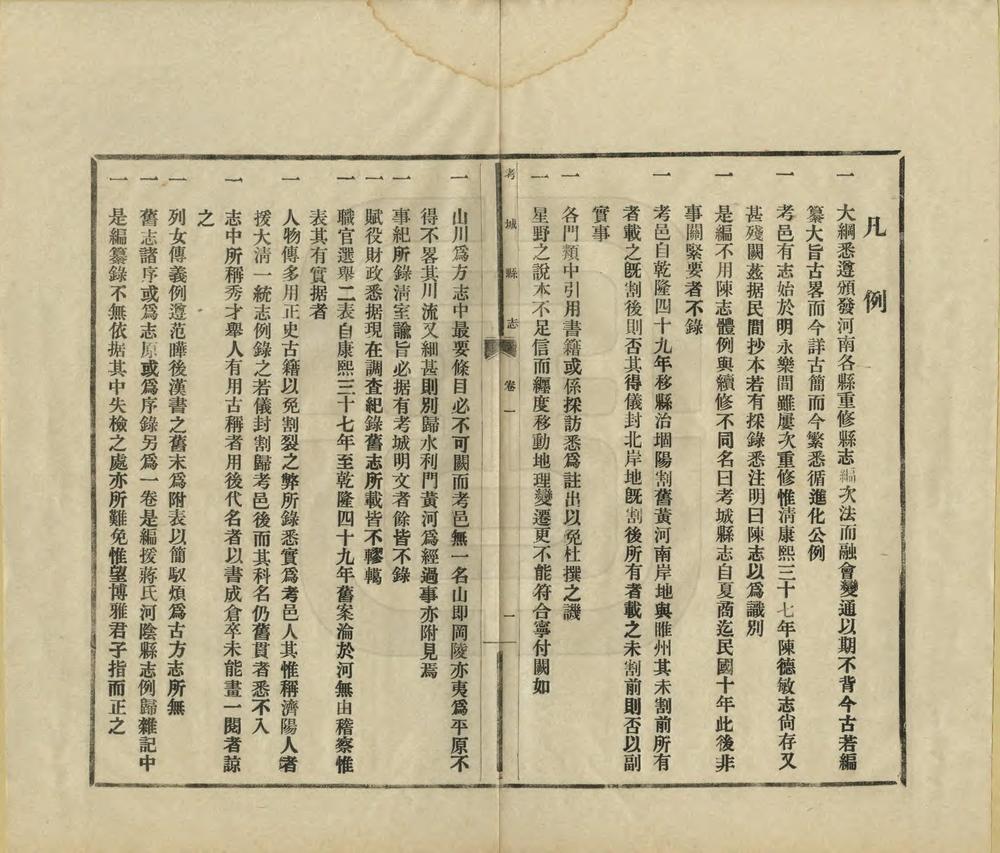 凡例
一 大綱悉遵頒發河南各縣重修縣志編次法而融會變通以期不背今古若編
纂大旨古畧而今詳古簡而今繁悉循進化公例
一 考邑有志始於明永樂間雖屢次重修惟淸康熙三十七年陳德敏志尙存又
甚殘闕茲据民間抄本若有採錄悉注明曰陳志以爲識別
一 是編不用陳志體例與續修不同名曰考城縣志自夏商迄民國十年此後非
事關緊要者不錄
一 考邑自乾隆四十九年移縣治堌陽割舊黃河南岸地與睢州其未割前所有
者載之旣割後則否其得儀封北岸地旣割後所有者載之未割前則否以副
實事
一 各門類中引用書籍或係採訪悉爲註出以免杜撰之譏
一 星野之說本不足信而纏度移動地理變遷更不能符合寧付闕如
考城縣志 卷一 一
一 山川爲方志中最要條目必不可闕而考邑無一名山即岡陵亦夷爲平原不
得不畧其川流又細甚則別歸水利門黃河爲經過事亦附見焉
一 事紀所錄淸室諭旨必据有考城明文者餘皆不錄
一 賦役財政悉据現在調查紀錄舊志所載皆不轇轕
一 職官選舉二表自康熙三十七年至乾隆四十九年舊案淪於河無由稽察惟
表其有實据者
一 人物傳多用正史古籍以免割裂之弊所錄悉實爲考邑人其惟稱濟陽人者
援大淸一統志例錄之若儀封割歸考邑後而其科名仍舊貫者悉不入
一 志中所稱秀才舉人有用古稱者用後代名者以書成倉卒未能畫一閱者諒
之
一 列女傳義例遵范曄後漢書之舊末爲附表以簡馭煩爲古方志所無
一 舊志諸序或爲志原或爲序錄另爲一卷是編援蔣氏河陰縣志例歸雜記中
一 是編纂錄不無依据其中失檢之處亦所難免惟望博雅君子指而正之